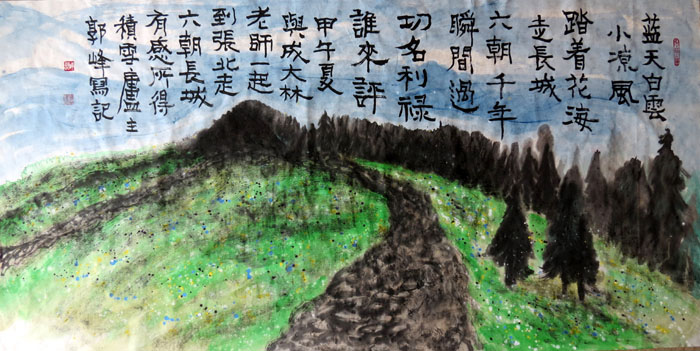 蓝天白雲
小凉風
踏着花海
走長城
六朝千年
瞬間過
切名利禄
誰來評
甲午夏
與成大林
老師一起
到張北走
六朝長城
有感所得
積雪廬主
郭峰寫記